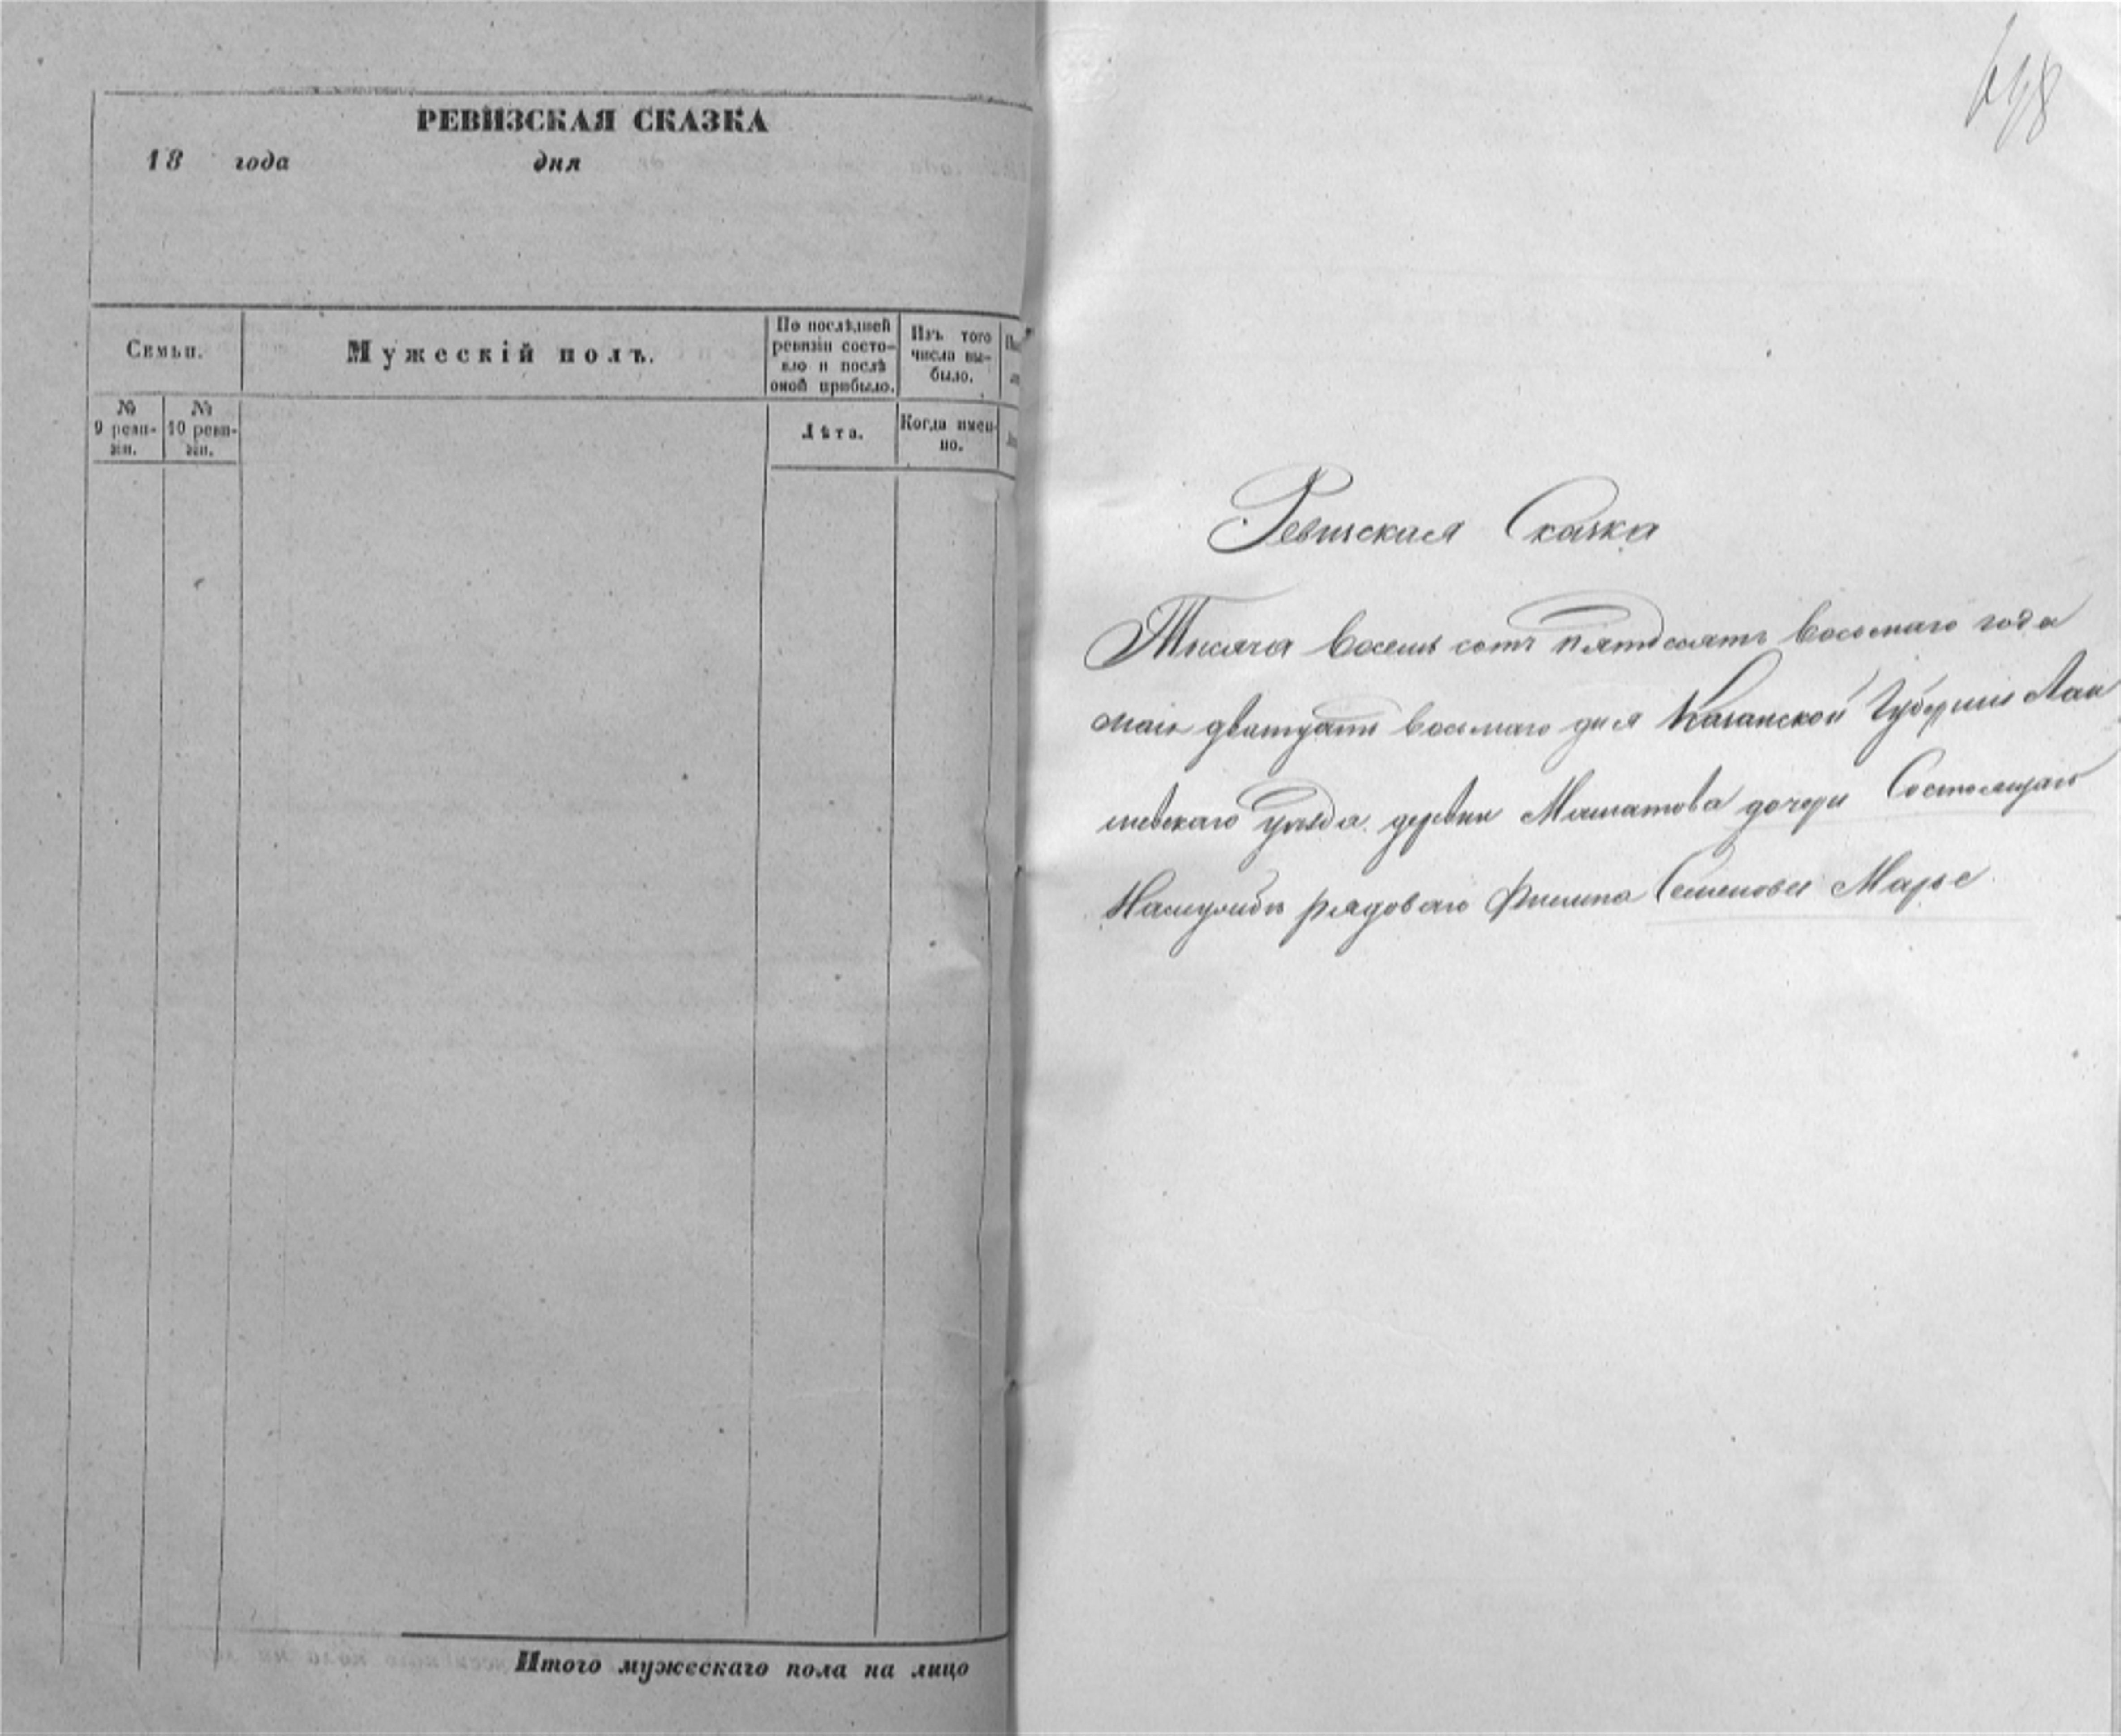 РЕВИЗСКАЯ СКАЗКА
18 года дня
Семьи.
Мужескій полъ.
По послѣдней
ревизіи состо-
яло и послѣ
оной прибыло.
Изъ того
числа вы-
было.
№
9 реви-
зіи.
№
10 реви-
зіи.
Лѣта.
Когда имен-
но.
Итого мужескаго пола на лицо
648
Ревизская Сказка
Тысяча восемь сотъ пятдесятъ восьмаго года
маія дватцать восьмаго дня Казанской Губерніи Лаи
шевскаго уѣзда деревни Машатова дочери Состоящаго
Наслужбѣ рядоваго Филипа Семеновы Марье